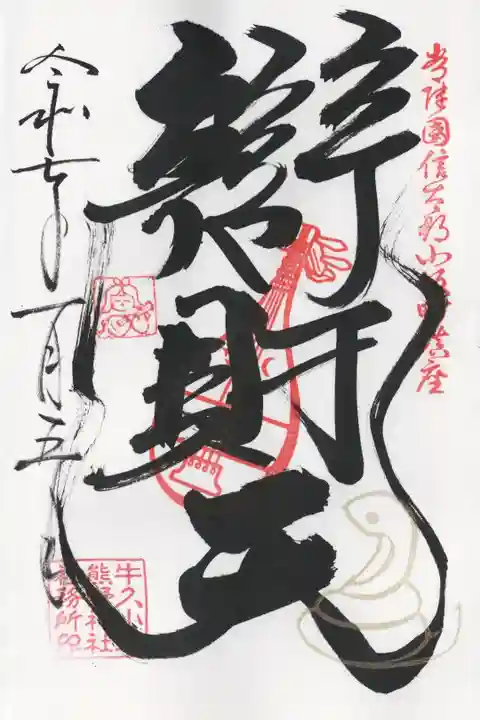 常陸國信太郡小坂鎮座
辯財天
令和七年一月五日
牛久小
熊野神社
社務所印